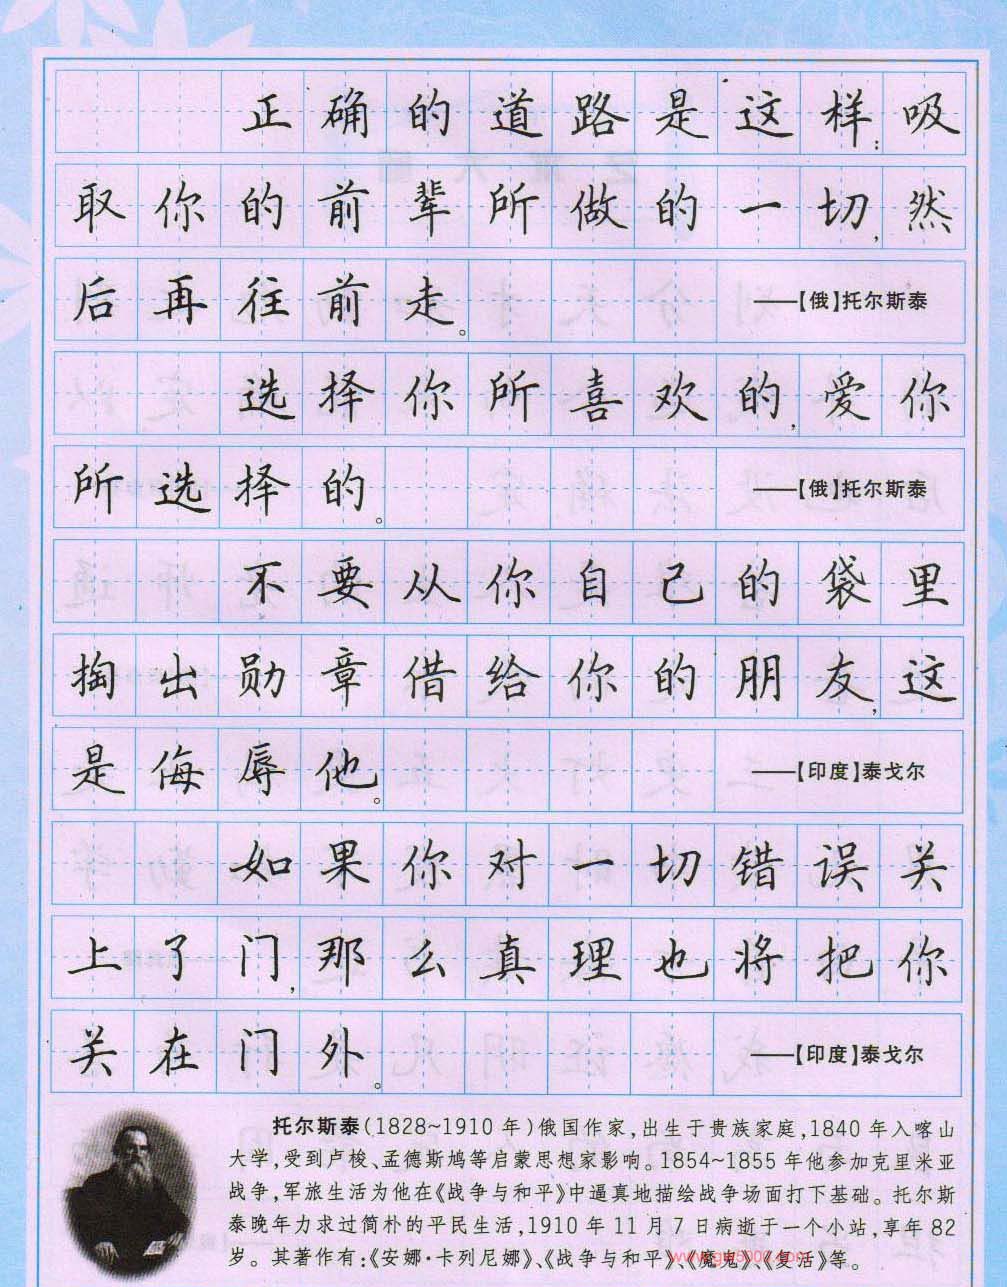 正确的道路是这样:吸
取你的前辈所做的一切,然
后再往前走。 ——【俄】托尔斯泰
选择你所喜欢的,爱你
所选择的。 ——【俄】托尔斯泰
不要从你自己的袋里
掏出勋章借给你的朋友,这
是侮辱他。 ——【印度】泰戈尔
如果你对一切错误关
上了门,那么真理也将把你
关在门外。 ——【印度】泰戈尔
托尔斯泰(1828~1910年)俄国作家,出生于贵族家庭,1840年入喀山
大学,受到卢梭、孟德斯鸠等启蒙思想家影响。1854~1855年他参加克里米亚
战争,军旅生活为他在《战争与和平》中逼真地描绘战争场面打下基础。托尔斯
泰晚年力求过简朴的平民生活,1910年11月7日病逝于一个小站,享年82
岁。其著作有:《安娜·卡列尼娜》、《战争与和平》、《魔鬼》、《复活》等。